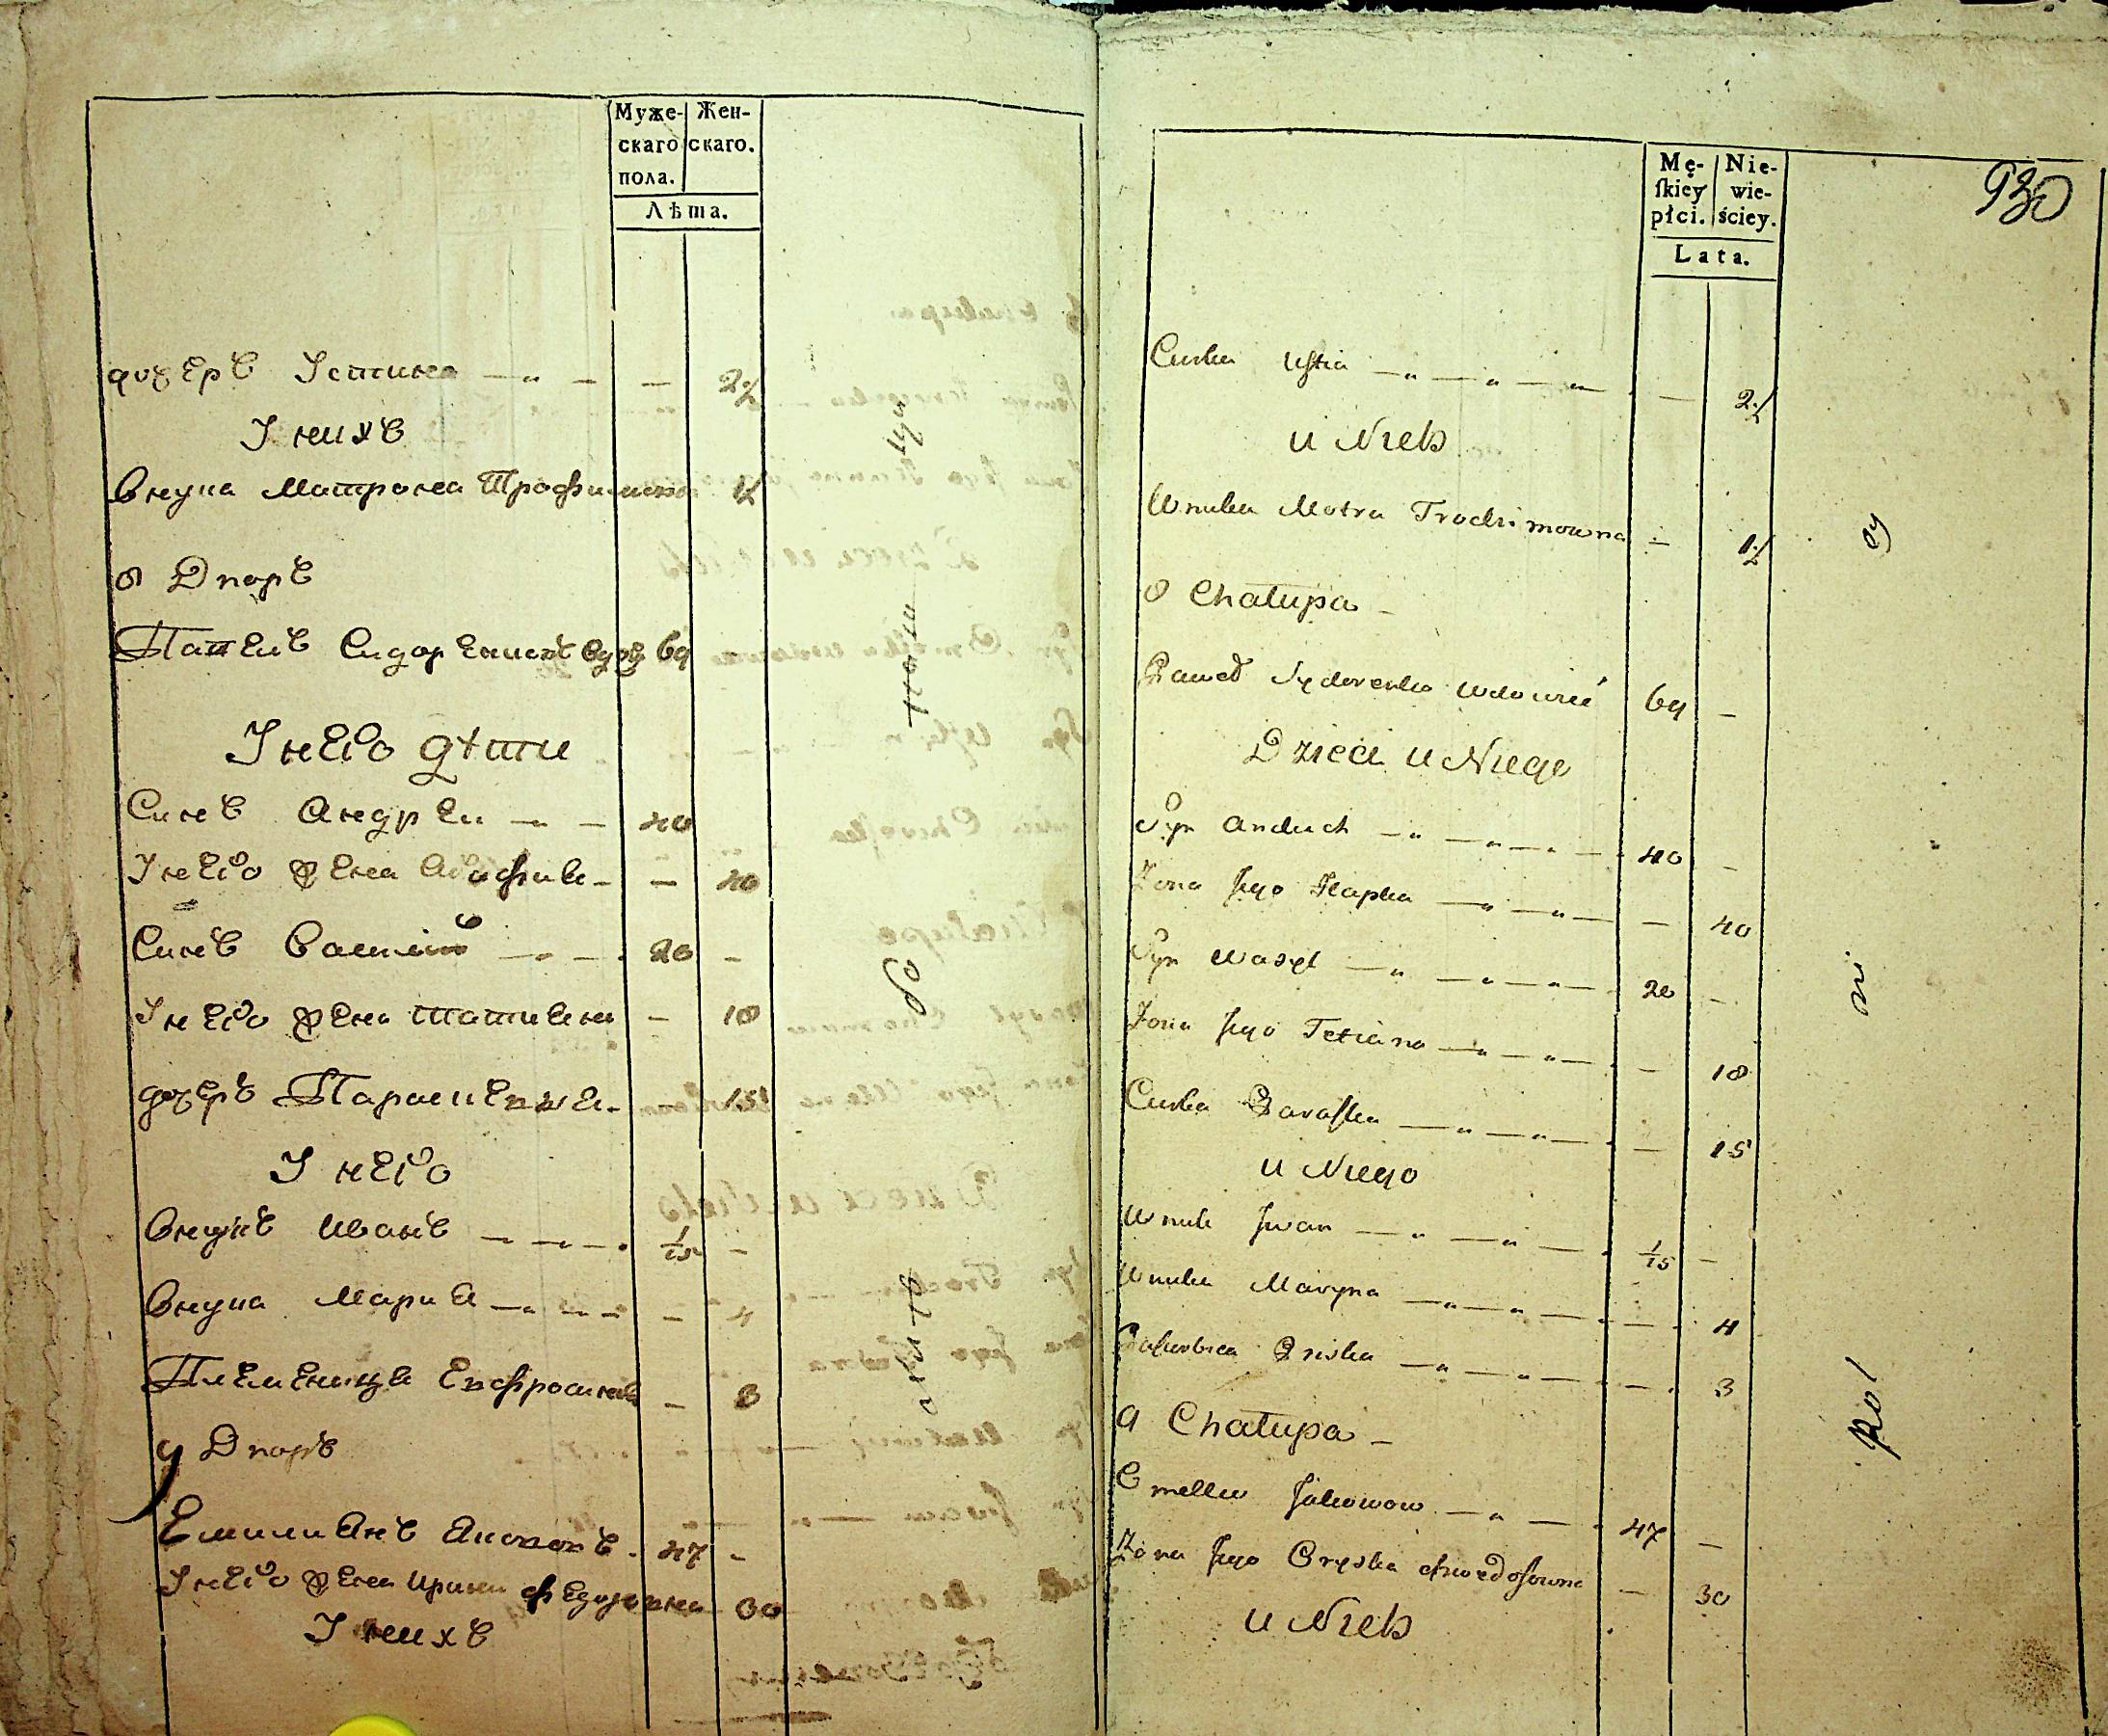 Муже- Жен-
скаго скаго.
пола.
Лѣта.
дочеръ Устина — „ — — 2½
У нихъ
Внука Матрона Трофимова ½
8 Дворъ
Павелъ Сидоренковъ вдовъ 69
У него дѣти
Синъ Андрей — „ — 40
У него жена Агафия — — 40
Синъ Василий — „ — 20 —
У него жена Татияна — 18
дочеръ Парасковия — 15
У него
Внукъ Иванъ — „ — „ — 1/15 —
Внука Мария — „ — „ — — 4
Племеница Евфросиния — 3
9 Дворъ
Емилиянъ Якововъ 47 —
У него жена Ирина Федосовна 30
У нихъ
Mę- Nie-
ſkiey wie-
płci. ściey.
Lata.
930
Curka Uſtia — „ — „ — „ — — 2½
u Nich
Wnuka Motra Trochimowna — 1½
8 Chałupa —
Paweł Sydorenko wdowiec 69 —
Dzieci u Niego
Syn Andruch — „ — „ — „ — 40 —
Żona Jego Hapka — „ — „ — — 40
Syn Wasyl — „ — „ — „ — 20 —
Żona Jego Tetiana — „ — „ — — 18
Curka Paraſka — „ — „ — — 15
u Niego
Wnuk Jwan — „ — „ — 1/15 —
Wnuka Maryna — „ — „ — — 4
Priska — „ — „ — — 3
9 Chałupa —
Omelko Jakowow — „ — 47 —
Żona Jego Oryszka Chwedoſowna — 30
u Nich